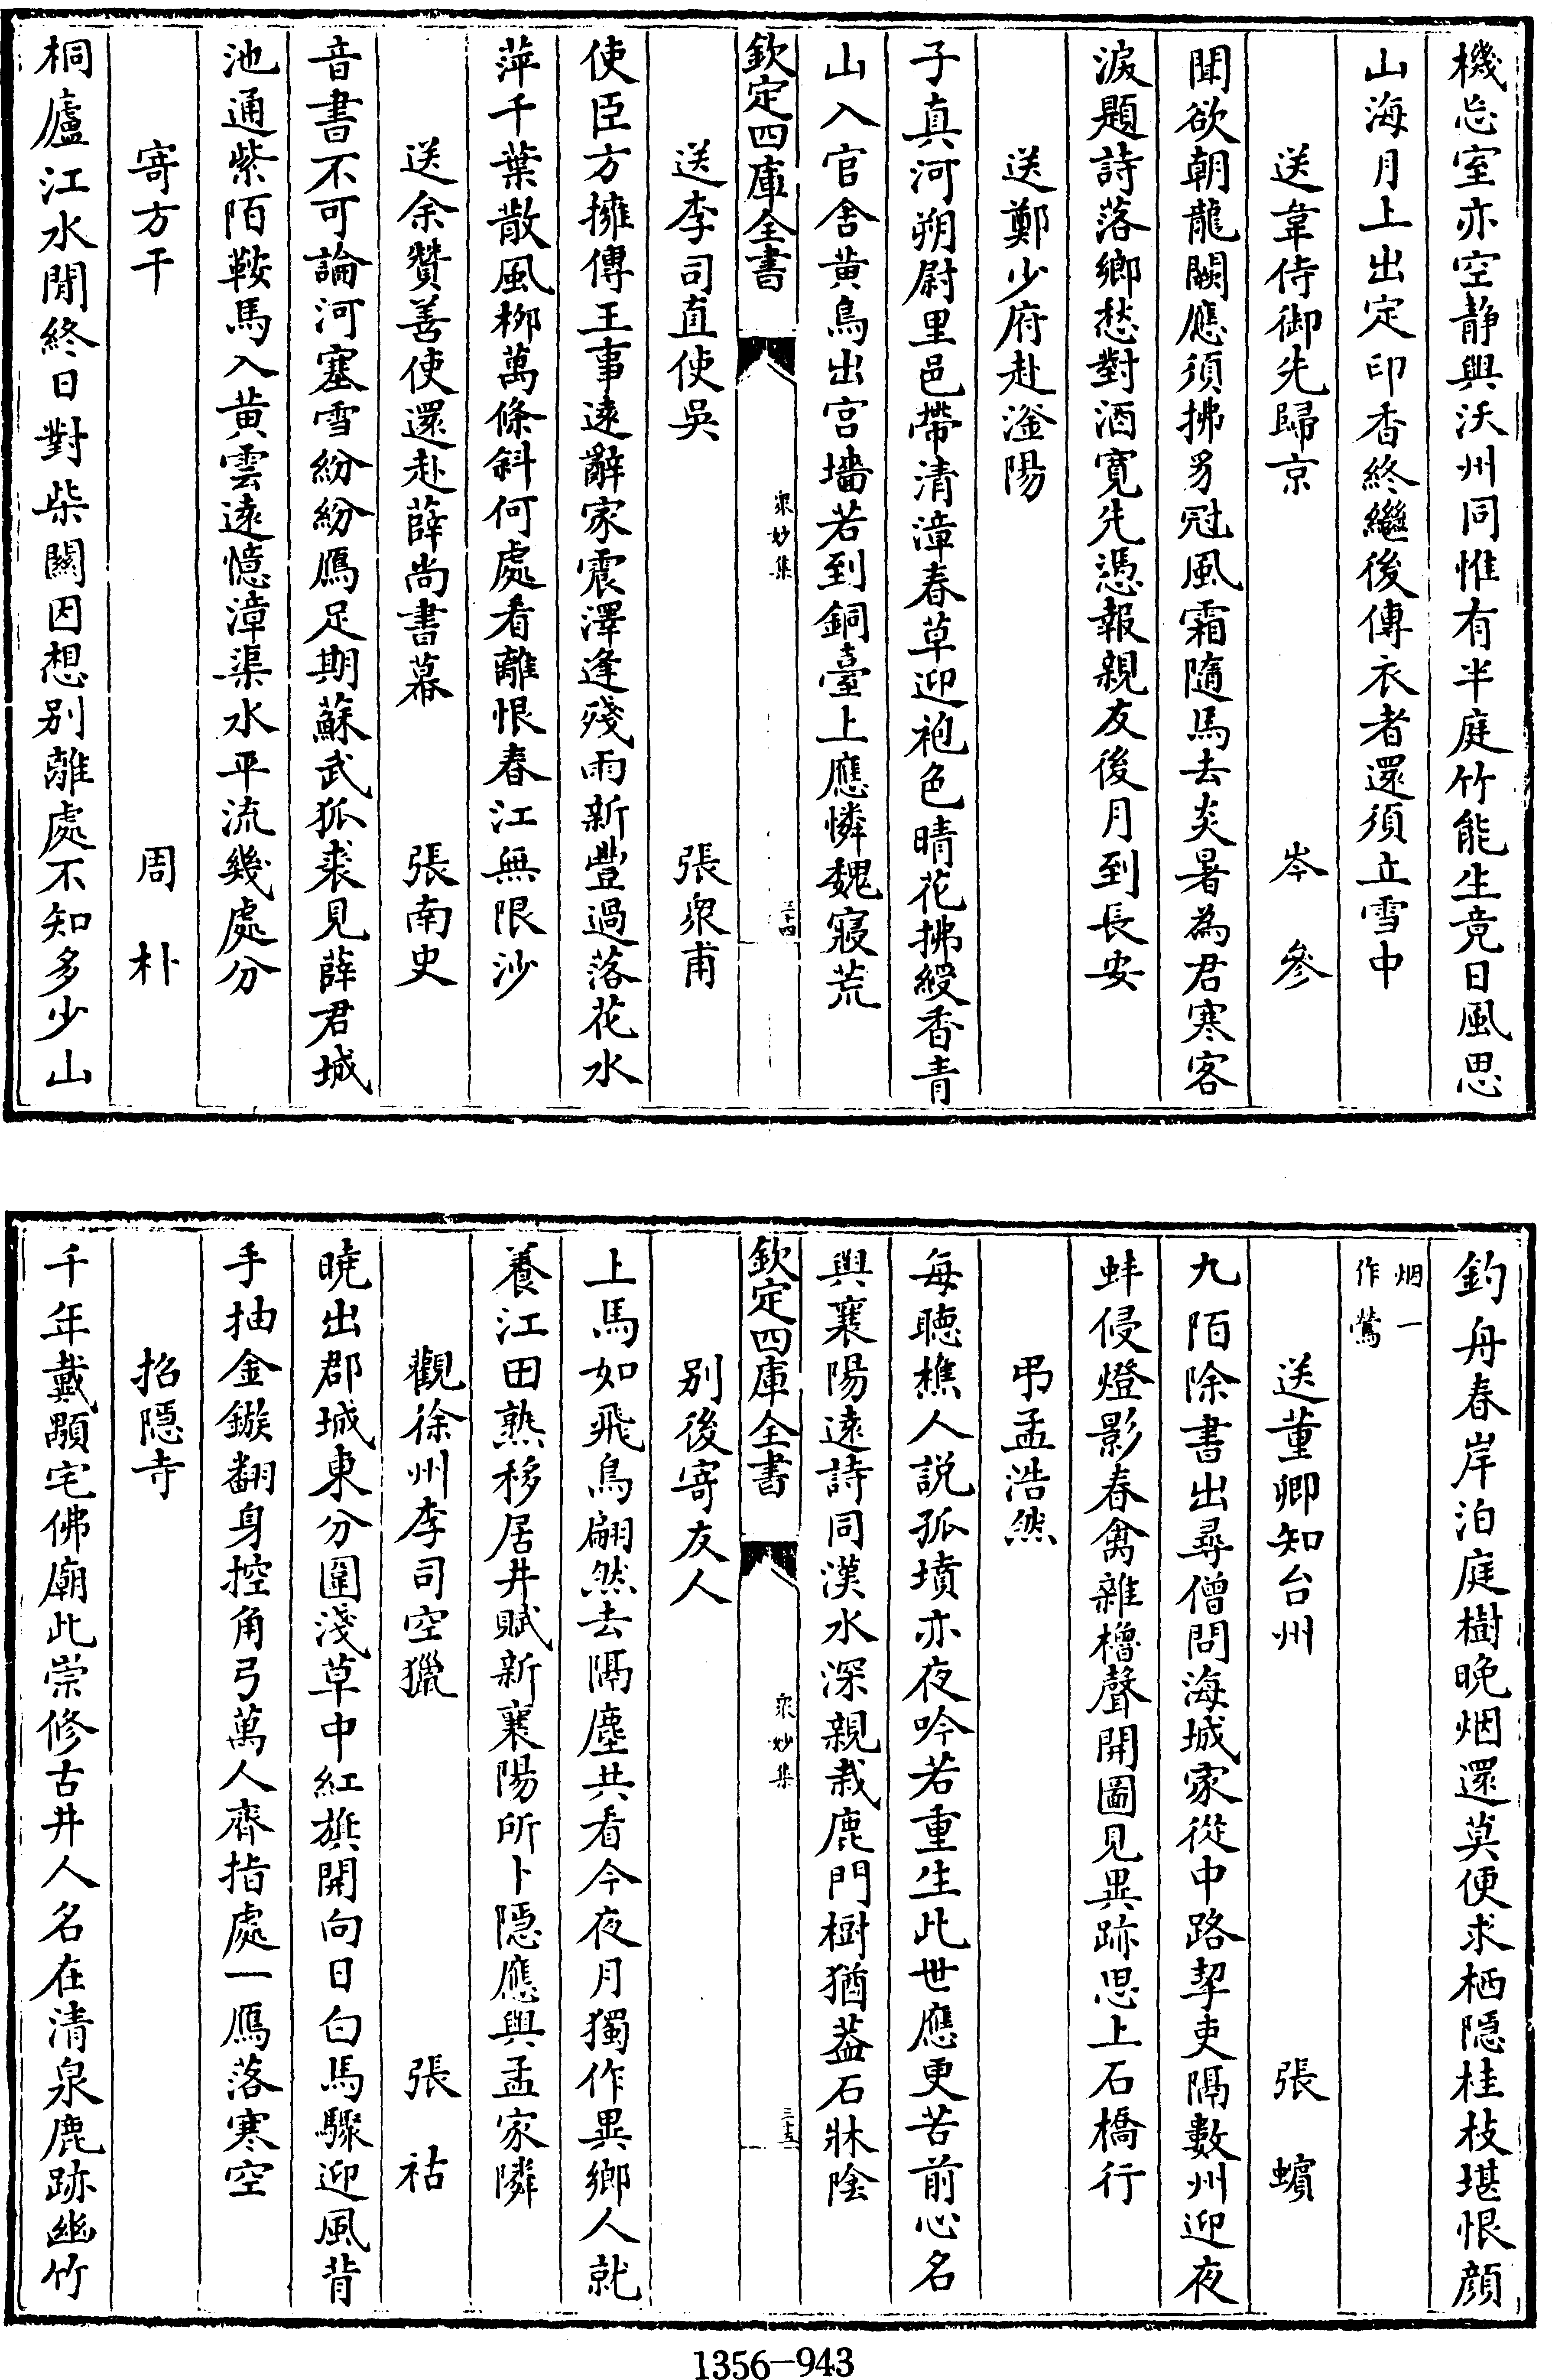 機忘室亦空静興沃州同惟有半庭竹能生竟日風思
山海月上出定印香終繼後傳衣者還須立雪中
送韋侍御先歸京 岑參
聞欲朝龍闕應須拂豸冠風霜隨馬去炎暑為君寒客
淚題詩落鄉愁對酒寛先憑報親友後月到長安
送鄭少府赴滏陽
子真河朔尉里邑帶清漳春草迎袍色晴花拂綬香青
山入官舍黄鳥出宫墻若到銅臺上應憐魏寢荒
欽定四庫全書 衆妙集 三十四
送李司直使吳 張衆甫
使臣方擁傳王事遠辭家震澤逢殘雨新豐過落花水
萍千葉散風柳萬條斜何處看離恨春江無限沙
送余贊善使還赴薛尚書幕 張南史
音書不可論河塞雪紛紛鴈足期蘇武狐裘見薛君城
池通紫陌鞍馬入黄雲遠憶漳渠水平流幾處分
寄方干 周朴
桐廬江水閒終日對柴關因想别離處不知多少山
釣舟春岸泊庭樹晚烟還莫便求栖隠桂枝堪恨顔
烟一作鶯
送董卿知台州 張蠙
九陌除書出尋僧問海城家從中路挈吏隔數州迎夜
蚌侵燈影春禽雜櫓聲開圖見異跡思上石橋行
弔孟浩然
每聽樵人説孤墳亦夜吟若重生此世應更苦前心名
與襄陽遠詩同漢水深親栽鹿門樹猶葢石牀陰
欽定四庫全書 衆妙集 三十五
别後寄友人
上馬如飛鳥翩然去隔塵共看今夜月獨作異鄉人就
養江田熟移居井賦新襄陽所卜隠應與孟家隣
觀徐州李司空獵 張祜
曉出郡城東分圍淺草中紅旗開向日白馬驟迎風背
手抽金鏃翻身控角弓萬人齊指處一鴈落寒空
招隠寺
千年戴顒宅佛廟此崇修古井人名在清泉鹿跡幽竹
1356-943